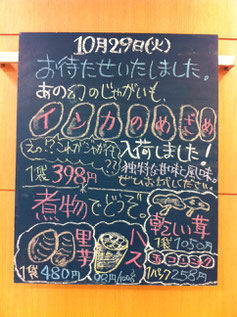 10月29日(火)
お待たせいたしました。
あの幻のじゃがいも、
インカのめざめ
えっ!?これがじゃが芋??
入荷しました!
独特な甘味と風味。
ぜひおためしください。
1袋398円
煮物でどうぞ。
里芋
1袋480円
ハス
98円/100g
乾しい茸
1袋1050円
1パック258円